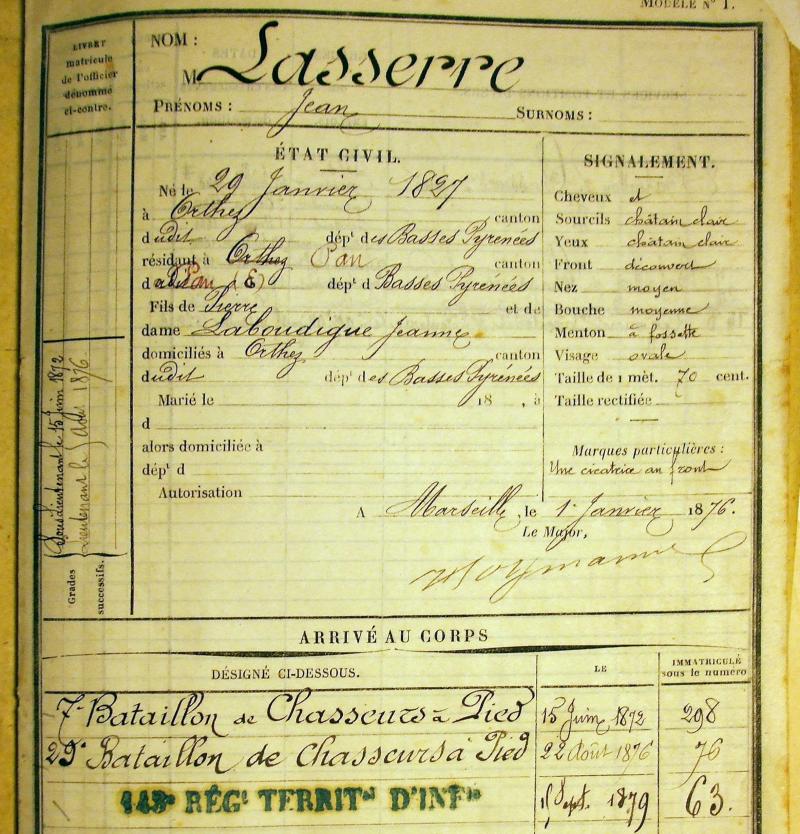 MODÈLE N° 1.
LIVRET
matricule
de l'officier
dénommé
ci-contre.
NOM :
M Lasserre
PRÉNOMS : Jean SURNOMS :
ÉTAT CIVIL.
Né le 29 Janvier 1827
à Orthez canton
dudit dépt des Basses Pyrénées
résidant à Orthez Pau canton
d Pau (E) dépt d Basses Pyrénées
Fils de Pierre et de
dame Laboudigue Jeanne
domiciliés à Orthez canton
dudit dépt des Basses Pyrénées
Marié le 18 , à
d
alors domiciliée à
dépt d
Autorisation
SIGNALEMENT.
Cheveux et
Sourcils châtain clair
Yeux châtain clair
Front découvert
Nez moyen
Bouche moyenne
Menton à fossette
Visage ovale
Taille de 1 mèt. 70 cent.
Taille rectifiée
Marques particulières :
Une cicatrice au front
A Marseille, le 1r Janvier 1876.
Le Major,
Grades
successifs.
Sous-Lieutenant le 15 Juin 1872
Lieutenant le 5 Août 1876
ARRIVÉ AU CORPS
DÉSIGNÉ CI-DESSOUS. LE IMMATRICULÉ
sous le numéro
7e Bataillon de Chasseurs à Pied 15 Juin 1872 298
29e Bataillon de Chasseurs à Pied 22 Août 1876 76
143e RÉGt TERRITal D'INFie Sept. 1879 63.